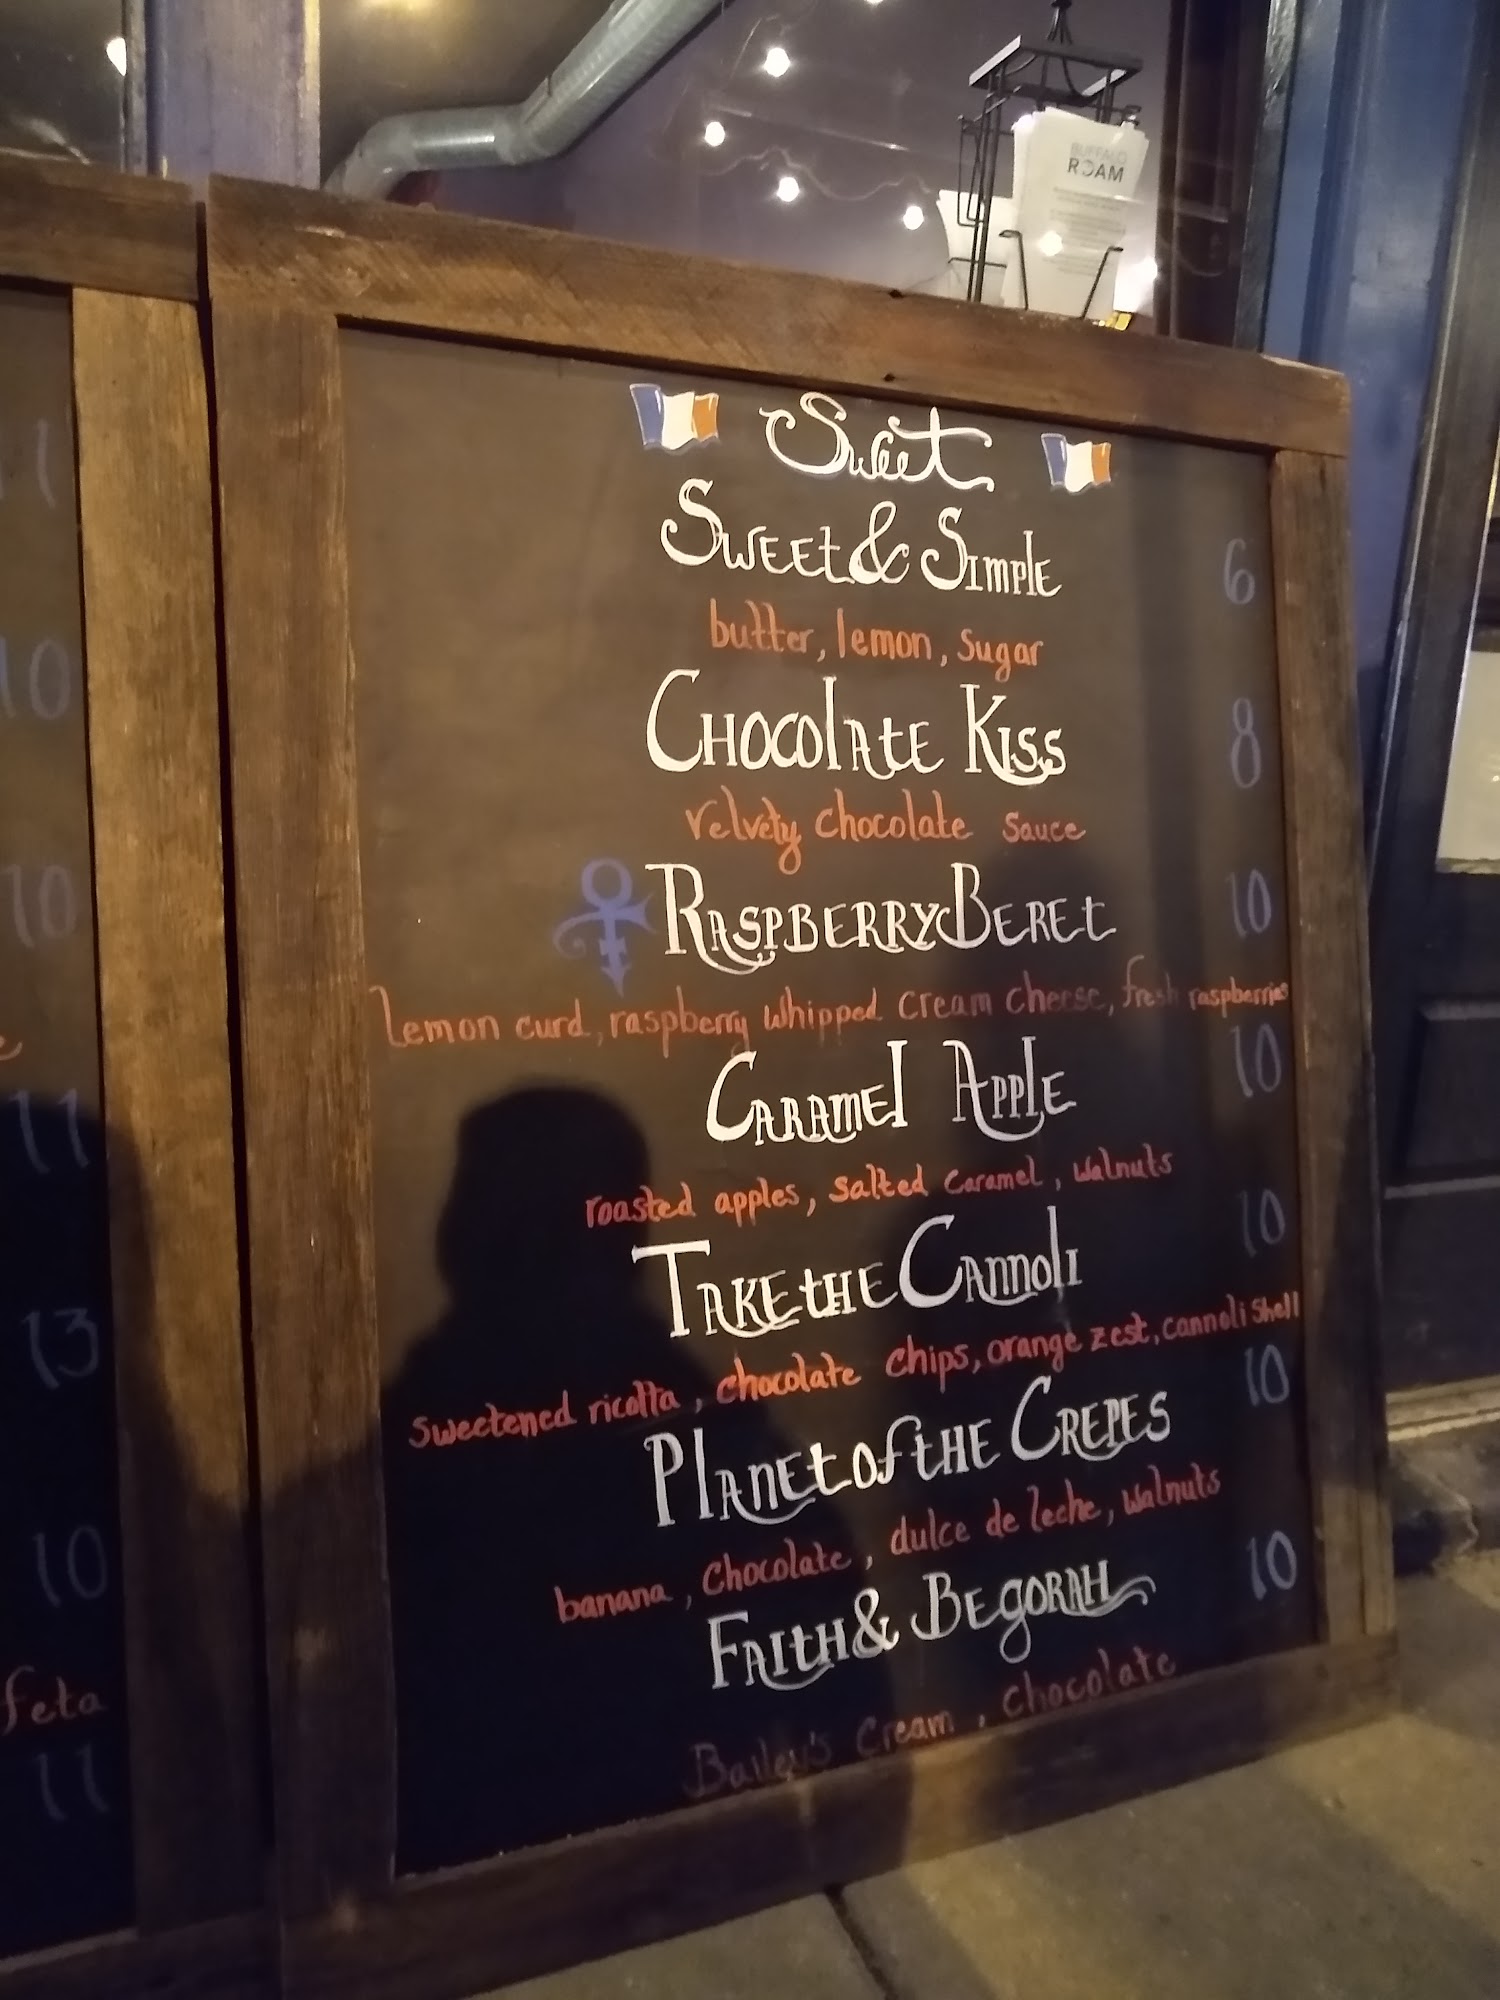 BUFFALO
ROAM
Sweet
SWEET & SIMPLE 6
butter, lemon, sugar
CHOCOLATE KISS 8
velvety chocolate sauce
RASPBERRY BERET 10
lemon curd, raspberry whipped cream cheese, fresh raspberries
CARAMEL APPLE 10
roasted apples, salted caramel, walnuts
TAKE THE CANNOLI 10
sweetened ricotta, chocolate chips, orange zest, cannoli shell
PLANET OF THE CREPES 10
banana, chocolate, dulce de leche, walnuts
FAITH & BEGORAH 10
Bailey's cream, chocolate
11
10
10
11
13
10
feta
11